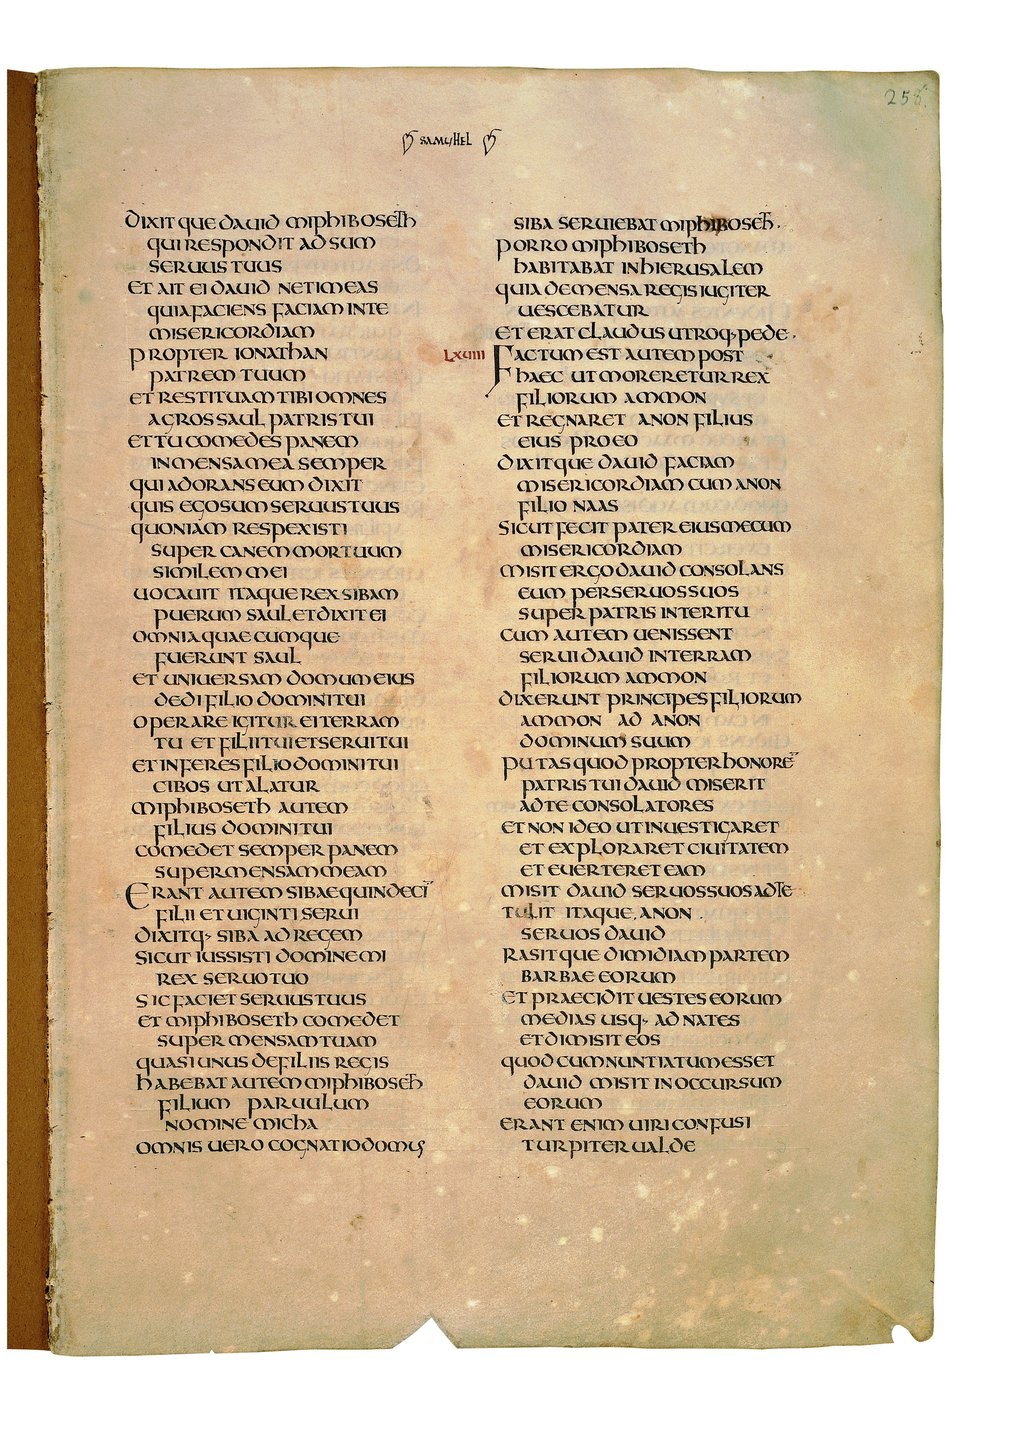 258
SAMUHEL
DIXITQUE DAUID MIPHIBOSETH
QUI RESPONDIT ADSUM
SERUUS TUUS
ET AIT EI DAUID NE TIMEAS
QUIA FACIENS FACIAM IN TE
MISERICORDIAM
PROPTER IONATHAN
PATREM TUUM
ET RESTITUAM TIBI OMNES
AGROS SAUL PATRIS TUI
ET TU COMEDES PANEM
IN MENSA MEA SEMPER
QUI ADORANS EUM DIXIT
QUIS EGO SUM SERUUS TUUS
QUONIAM RESPEXISTI
SUPER CANEM MORTUUM
SIMILEM MEI
UOCAUIT ITAQUE REX SIBAM
PUERUM SAUL ET DIXIT EI
OMNIA QUAECUMQUE
FUERUNT SAUL
ET UNIUERSAM DOMUM EIUS
DEDI FILIO DOMINI TUI
OPERARE IGITUR EI TERRAM
TU ET FILII TUI ET SERUI TUI
ET INFERES FILIO DOMINI TUI
CIBOS UT ALATUR
MIPHIBOSETH AUTEM
FILIUS DOMINI TUI
COMEDET SEMPER PANEM
SUPER MENSAM MEAM
ERANT AUTEM SIBAE QUINDECI¯
FILII ET UIGINTI SERUI
DIXITQ· SIBA AD REGEM
SICUT IUSSISTI DOMINE MI
REX SERUO TUO
SIC FACIET SERUUS TUUS
ET MIPHIBOSETH COMEDET
SUPER MENSAM TUAM
QUASI UNUS DE FILIIS REGIS
HABEBAT AUTEM MIPHIBOSETH
FILIUM PARUULUM
NOMINE MICHA
OMNIS UERO COGNATIO DOMUS
SIBA SERUIEBAT MIPHIBOSETH·
PORRO MIPHIBOSETH
HABITABAT IN HIERUSALEM
QUIA DE MENSA REGIS IUGITER
UESCEBATUR
ET ERAT CLAUDUS UTROQ· PEDE·
LXVIIII FACTUM EST AUTEM POST
HAEC UT MORERETUR REX
FILIORUM AMMON
ET REGNARET ANON FILIUS
EIUS PRO EO
DIXITQUE DAUID FACIAM
MISERICORDIAM CUM ANON
FILIO NAAS
SICUT FECIT PATER EIUS MECUM
MISERICORDIAM
MISIT ERGO DAUID CONSOLANS
EUM PER SERUOS SUOS
SUPER PATRIS INTERITU
CUM AUTEM UENISSENT
SERUI DAUID IN TERRAM
FILIORUM AMMON
DIXERUNT PRINCIPES FILIORUM
AMMON AD ANON
DOMINUM SUUM
PUTAS QUOD PROPTER HONORE¯
PATRIS TUI DAUID MISERIT
AD TE CONSOLATORES
ET NON IDEO UT INUESTIGARET
ET EXPLORARET CIUITATEM
ET EUERTERET EAM
MISIT DAUID SERUOS SUOS AD TE
TULIT ITAQUE ANON
SERUOS DAUID
RASITQUE DIMIDIAM PARTEM
BARBAE EORUM
ET PRAECIDIT UESTES EORUM
MEDIAS USQ· AD NATES
ET DIMISIT EOS
QUOD CUM NUNTIATUM ESSET
DAUID MISIT IN OCCURSUM
EORUM
ERANT ENIM UIRI CONFUSI
TURPITER UALDE